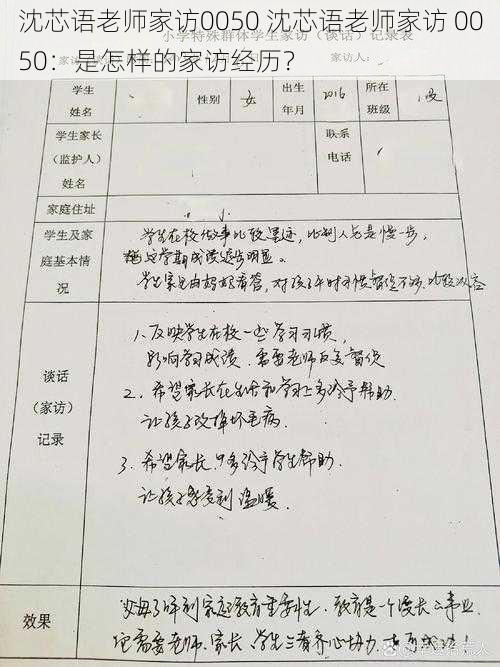 沈芯语老师家访0050 沈芯语老师家访 00
50：是怎样的家访经历？
小学特殊群体学生家访（谈话）记录表
家访人：
学生姓名 性别 女 出生年月 2016 所在班级
学生家长（监护人）姓名 联系电话
家庭住址
学生及家庭基本情况
学生在校做事比较墨迹，比别人总是慢一步，
这学期成绩退步明显。
学生家里由妈妈看管，对孩子平时习惯督促不够，比较
谈话（家访）记录
1、反映学生在校一些学习习惯，
影响学习成绩，需要老师反复督促
2、希望家长在生活和学习上多给予帮助，
让孩子改掉坏毛病，
3、希望家长多给予学生帮助，
让孩子感受到温暖。
效果
父母了解到家庭教育重要性，教育是一个漫长的事业，
它需要老师、家长、学生三者齐心协力，